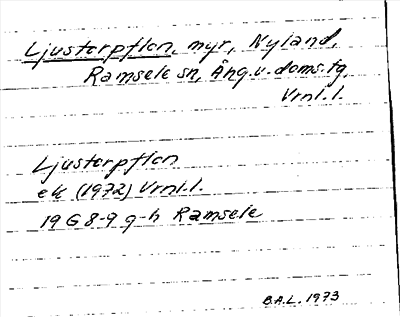 Ljustorpflon, myr, Nyland,
Ramsele sn, Ång.v. doms.tg
Vrnl.l.
Ljustorpflon
ek (1972) Vrnl.l.
19 G 8-9 g-h Ramsele
B.A.L. 1973